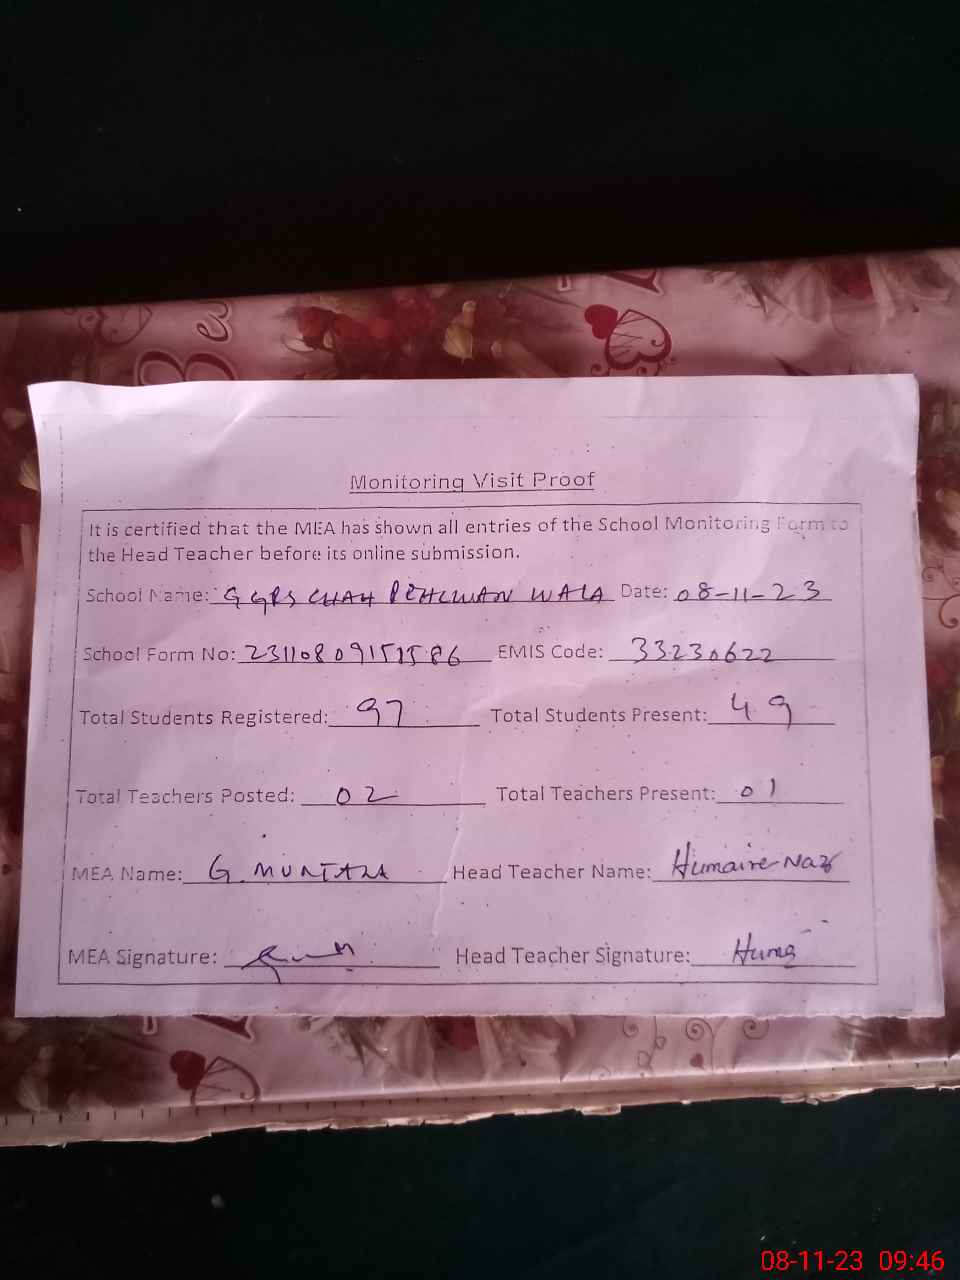 Monitoring Visit Proof
It is certified that the MEA has shown all entries of the School Monitoring Form to
the Head Teacher before its online submission.
School Name: GGPS CHAH PEHLWAN WALA Date: 08-11-23
School Form No: EMIS Code: 33230622
Total Students Registered: 97 Total Students Present: 49
Total Teachers Posted: 02 Total Teachers Present: 01
MEA Name: G. MURTAZA Head Teacher Name: Humaira Naz
MEA Signature: Head Teacher Signature: Huma
08-11-23 09:46